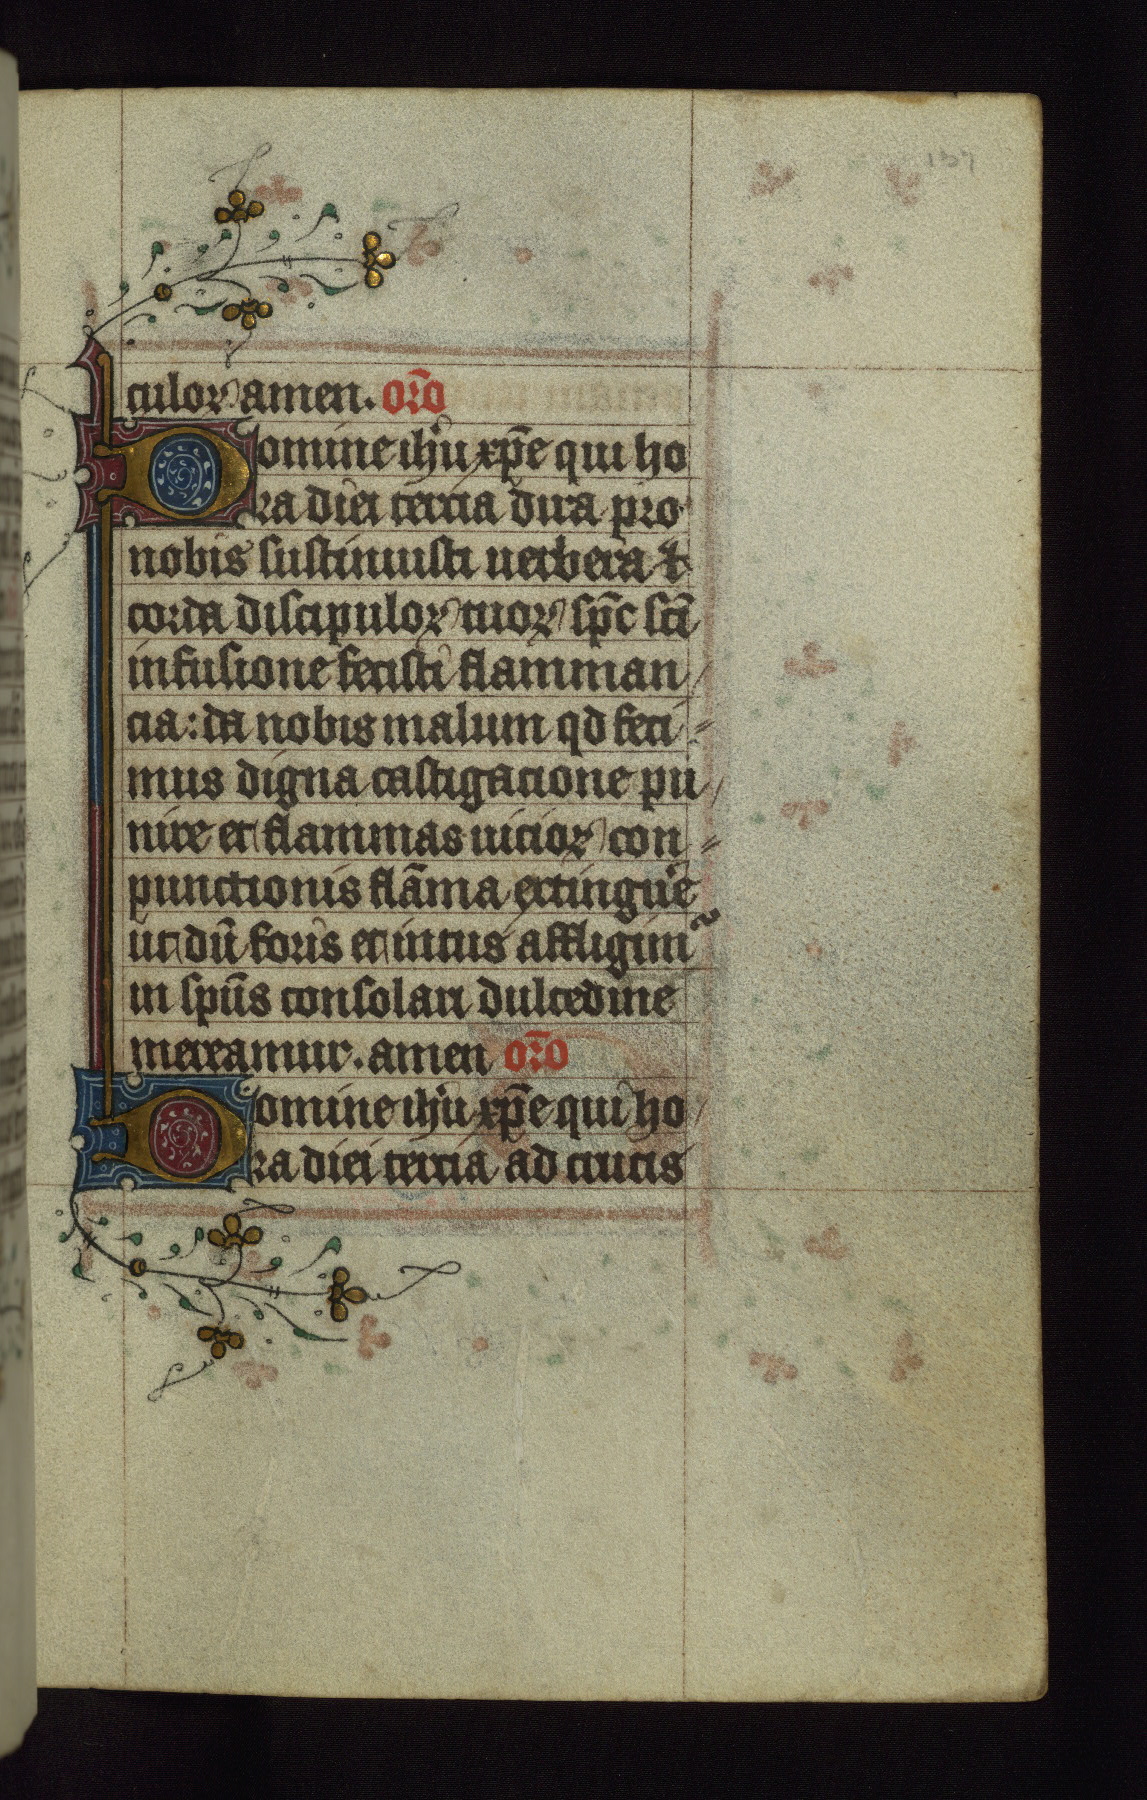 culoꝝ amen. or̄o
Domine ih̄u xp̄e qui ho
ra diei tercia dira pro
nobis sustinuisti uerbera ⁊
corda discipuloꝝ tuoꝝ sp̄c sc̄i
infusione fecisti flamman
cia: da nobis malum qd feci
mus digna castigacione pu
nire et flammas uicioꝝ con
punctionis flām̄a extingue
ut dū foris et intus affligim᷒
in sp̄us consolari dulcedine
mereamur. amen or̄o
Domine ih̄u xp̄e qui ho
ra diei tercia ad crucis